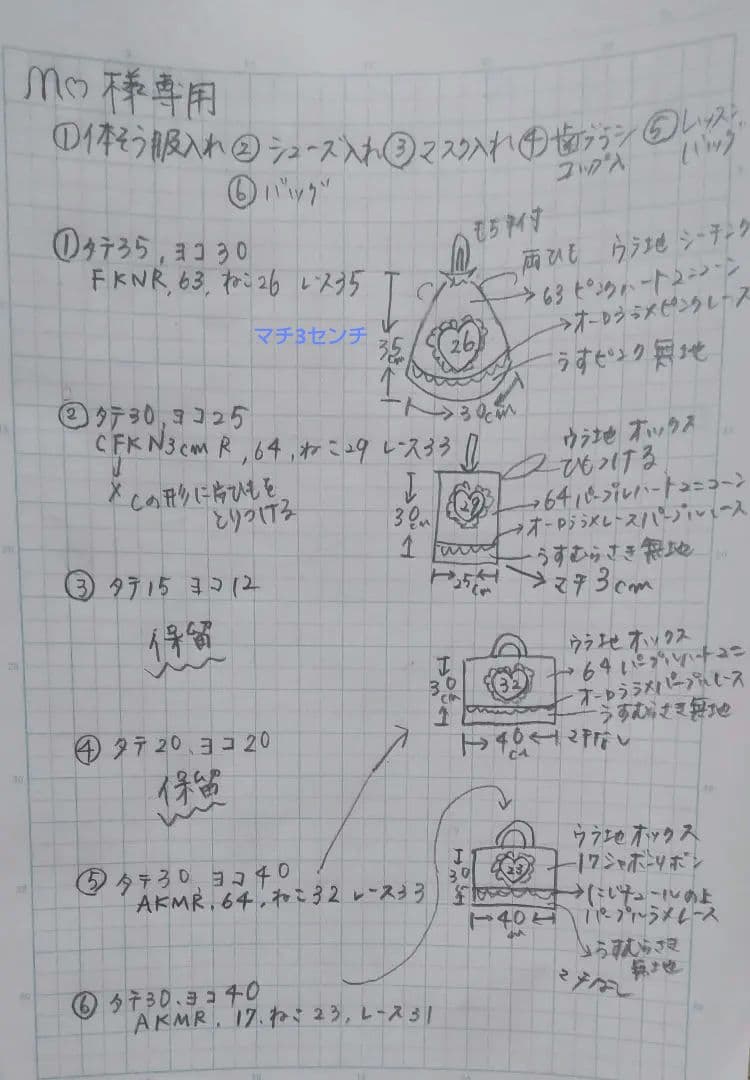 M♡様専用
①体そう服入れ ②シューズ入れ ③マスク入れ ④歯ブラシ コップ入 ⑤レッスンバッグ
⑥バッグ
①タテ35,ヨコ30
FKNR,63,ねこ26 レース35
マチ3センチ
もちテ付
両ひも ウラ地 シーチング
63ピンクハートユニコーン
オーロララメピンクレース
うすピンク無地
26
35cm
30cm
②タテ30,ヨコ25
CFKN3cmR,64,ねこ29 レース33
× Cの形に片ひもを
とりつける
ウラ地 オックス
ひもつける
64パープルハートユニコーン
オーロララメレースパープルレース
うすむらさき無地
マチ3cm
29
30cm
25cm
③タテ15 ヨコ12
保留
④タテ20、ヨコ20
保留
⑤タテ30、ヨコ40
AKMR,64,ねこ32 レース33
ウラ地 オックス
64パープルハートユニ
オーロララメパープルレース
うすむらさき無地
マチなし
32
30cm
40cm
⑥タテ30、ヨコ40
AKMR,17,ねこ23,レース31
ウラ地オックス
17シャボンリボン
にじチュールの上
パープルラメレース
うすむらさき
無地
マチなし
23
30
40cm